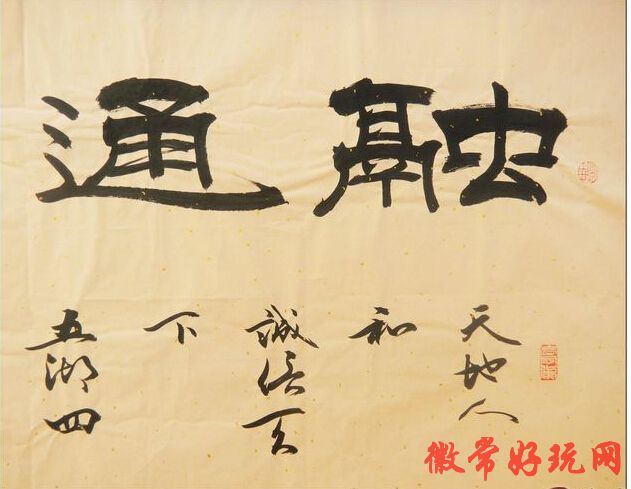 融通
天地人
和
誠信天
下
五湖四
徽常好玩网